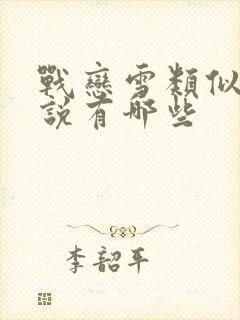 戰戀雪類似
說有那些
李韶平